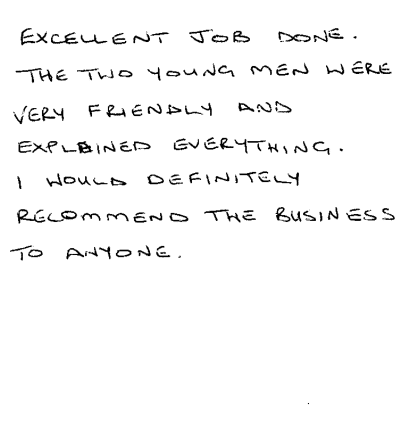 EXCELLENT JOB DONE.
THE TWO YOUNG MEN WERE
VERY FRIENDLY AND
EXPLAINED EVERYTHING.
I WOULD DEFINITELY
RECOMMEND THE BUSINESS
TO ANYONE.